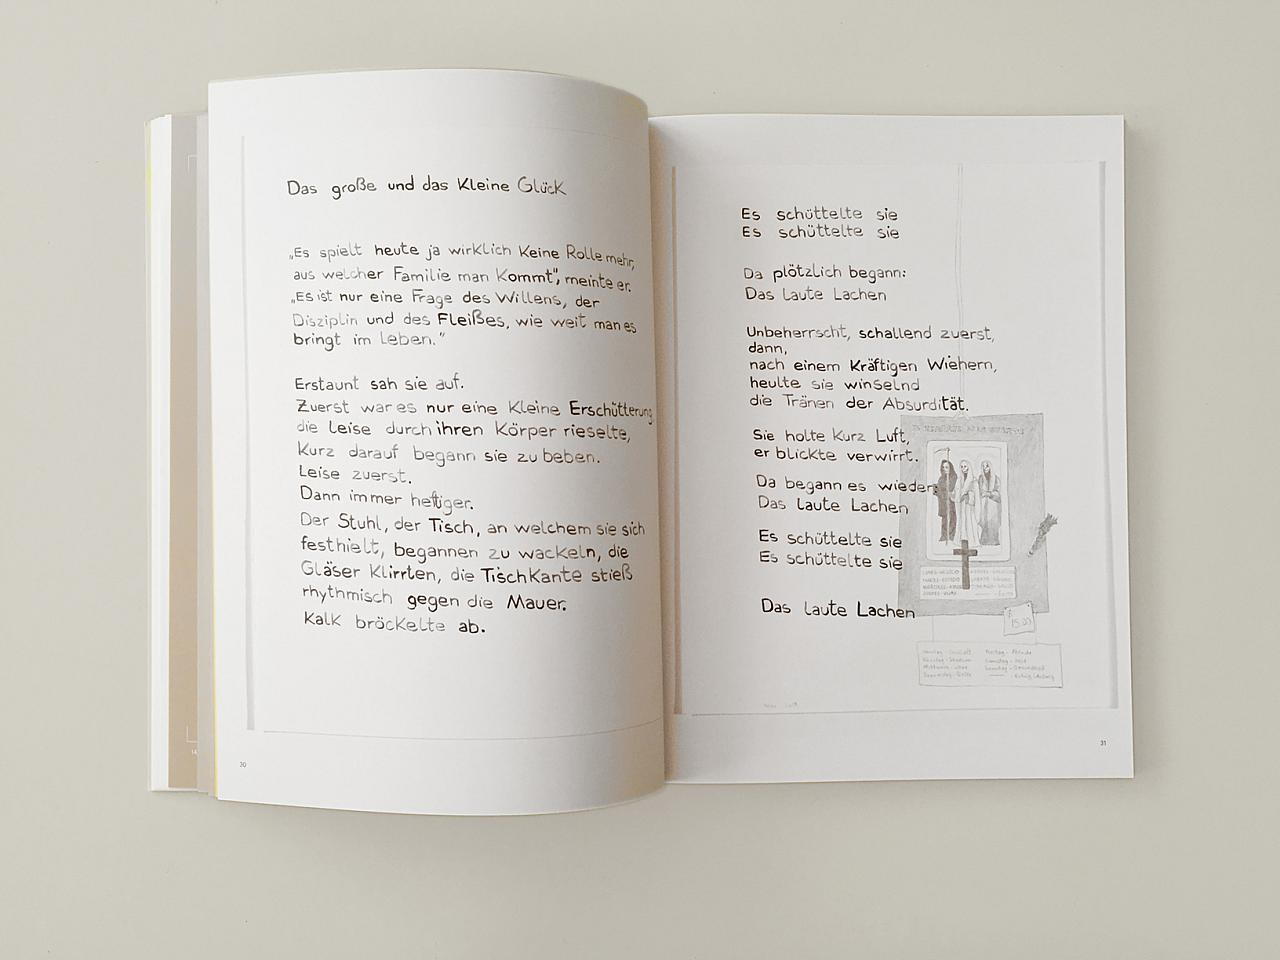 Das große und das Kleine Glück
„Es spielt heute ja wirklich Keine Rolle mehr,
aus welcher Familie man Kommt", meinte er.
„Es ist nur eine Frage des Willens, der
Disziplin und des Fleißes, wie weit man es
bringt im Leben."
Erstaunt sah sie auf.
Zuerst war es nur eine Kleine Erschütterung
die leise durch ihren Körper rieselte,
Kurz darauf begann sie zu beben.
Leise zuerst.
Dann immer heftiger.
Der Stuhl, der Tisch, an welchem sie sich
festhielt, begannen zu wackeln, die
Gläser Klirrten, die TischKante stieß
rhythmisch gegen die Mauer.
Kalk bröckelte ab.
30
14
Es schüttelte sie
Es schüttelte sie
Da plötzlich begann:
Das laute Lachen
Unbeherrscht, schallend zuerst,
dann,
nach einem Kräftigen Wiehern,
heulte sie winselnd
die Tränen der Absurdität.
Sie holte Kurz Luft,
er blickte verwirrt.
Da begann es wieder:
Das laute Lachen
Es schüttelte sie
Es schüttelte sie
Das laute Lachen
$ 15.00
31